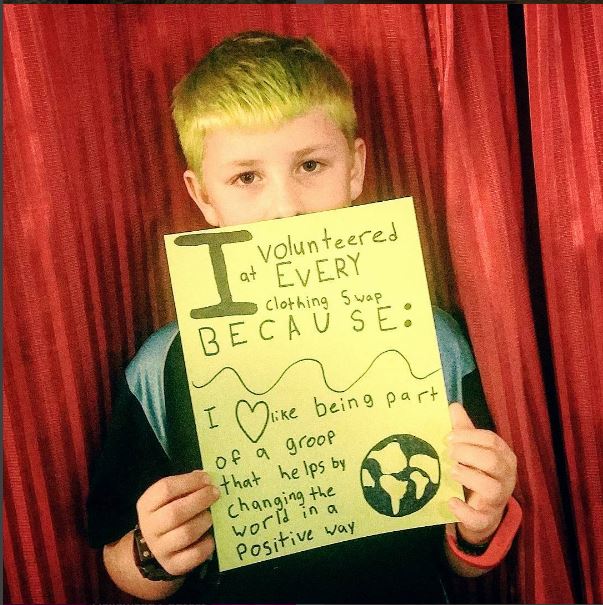 I volunteered
at EVERY
clothing Swap
BECAUSE:
I like being part
of a groop
that helps by
changing the
world in a
positive way